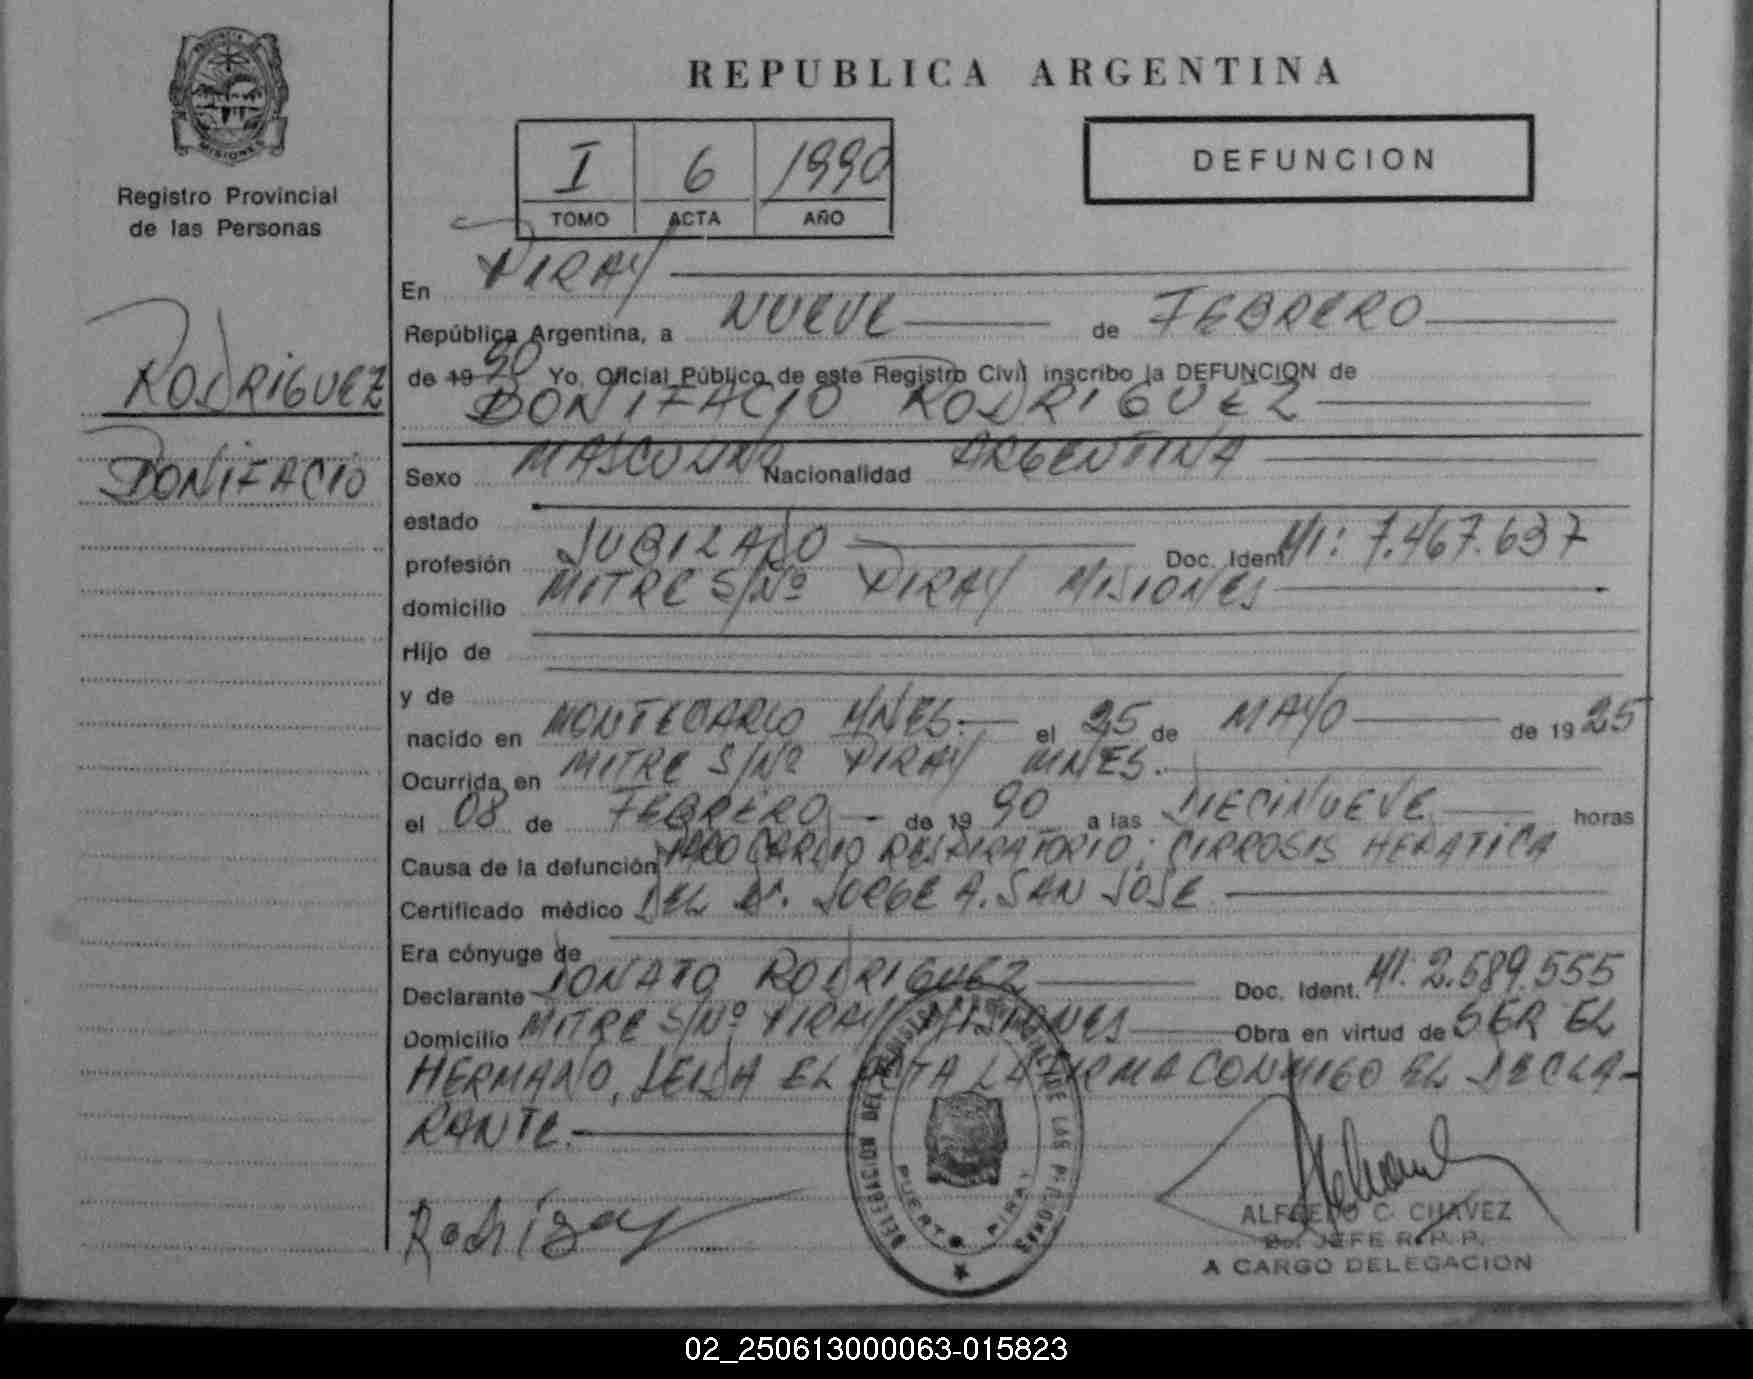 PROVINCIA DE
MISIONES
Registro Provincial
de las Personas
RODRIGUEZ
BONIFACIO
REPUBLICA ARGENTINA
I 6 1990
TOMO ACTA AÑO
DEFUNCION
En PIRAY
República Argentina, a NUEVE de FEBRERO
de 19 90 Yo, Oficial Público de este Registro Civil inscribo la DEFUNCION de
BONIFACIO RODRIGUEZ
Sexo MASCULINO Nacionalidad ARGENTINA
estado
profesión JUBILADO Doc. Ident. MI: 7.467.637
domicilio MITRE S/Nº PIRAY MISIONES
Hijo de
y de
nacido en MONTECARLO MNES. el 25 de MAYO de 19 25
Ocurrida en MITRE S/Nº PIRAY MNES.
el 08 de FEBRERO de 19 90 a las DIECINUEVE horas
Causa de la defunción PARO CARDIO RESPIRATORIO; CIRROSIS HEPATICA
Certificado médico DEL Dr. JORGE A. SAN JOSE
Era cónyuge de
Declarante DONATO RODRIGUEZ Doc. Ident. MI. 2.589.555
Domicilio MITRE S/Nº PIRAY MISIONES Obra en virtud de SER EL
HERMANO, LEIDA EL ACTA LA FIRMA CONMIGO EL DECLA-
RANTE.
DELEGACION DEL REGISTRO PROVINCIAL DE LAS PERSONAS
PUERTO PIRAY
Rodriguez
ALFREDO C. CHAVEZ
2do. JEFE R. P. P.
A CARGO DELEGACION
02_250613000063-015823